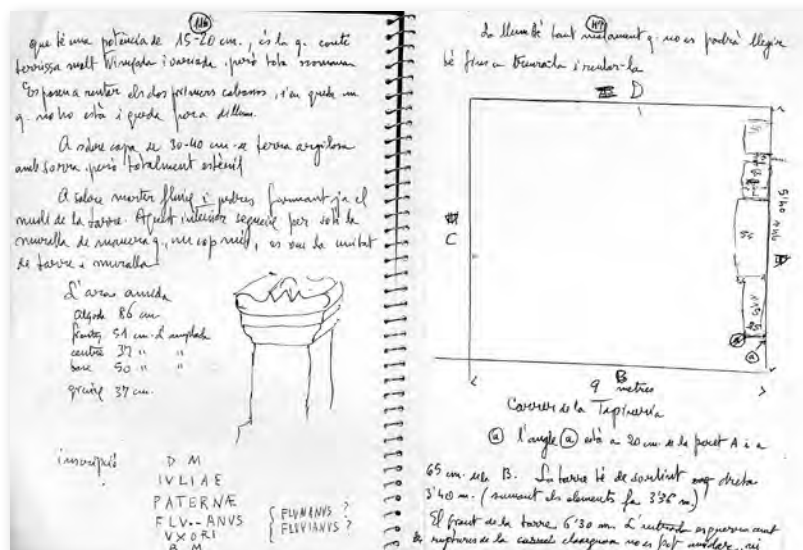 116
que té una potència de 15-20 cm., és la q. conté
terrissa molt trinxada i variada, però tota romana
Es posen a rentar els dos primers cabassos, i en queda un
q. no ho està i queda para dilluns.
A sobre capa de 30-40 cm. de terra argilosa
amb sorra, però totalment estèril
A sobre morter fluix i pedres formant ja el
nucli de la torre. Aquest interior segueix per sota la
muralla de manera q., un cop més, es veu la unitat
de torre i muralla
L'ara amida
alçada 86 cm
front 51 cm. d'amplada
centre 37 " "
base 50 " "
gruix 37 cm.
inscripció
D M
IVLIAE
PATERNÆ
FLV--ANVS
FLVMANVS ?
FLUVIANUS ?
VXORI
B M
117
La llum és tant q. no es podrà llegir
bé fins a treure-la i rentar-la
D
C
A
B
9 metres
Carrer de la Tapineria
a
a
(a) l'angle (a) està a 20 cm. de la paret A i a
65 cm. de la B. La torre té de sortint dreta
3'40 m. (sumant els elements fa 3'36 m)
El front de la torre 6'30 m. L'entrada esquerra
ruptures de la claveguera no es pot amidar, ni